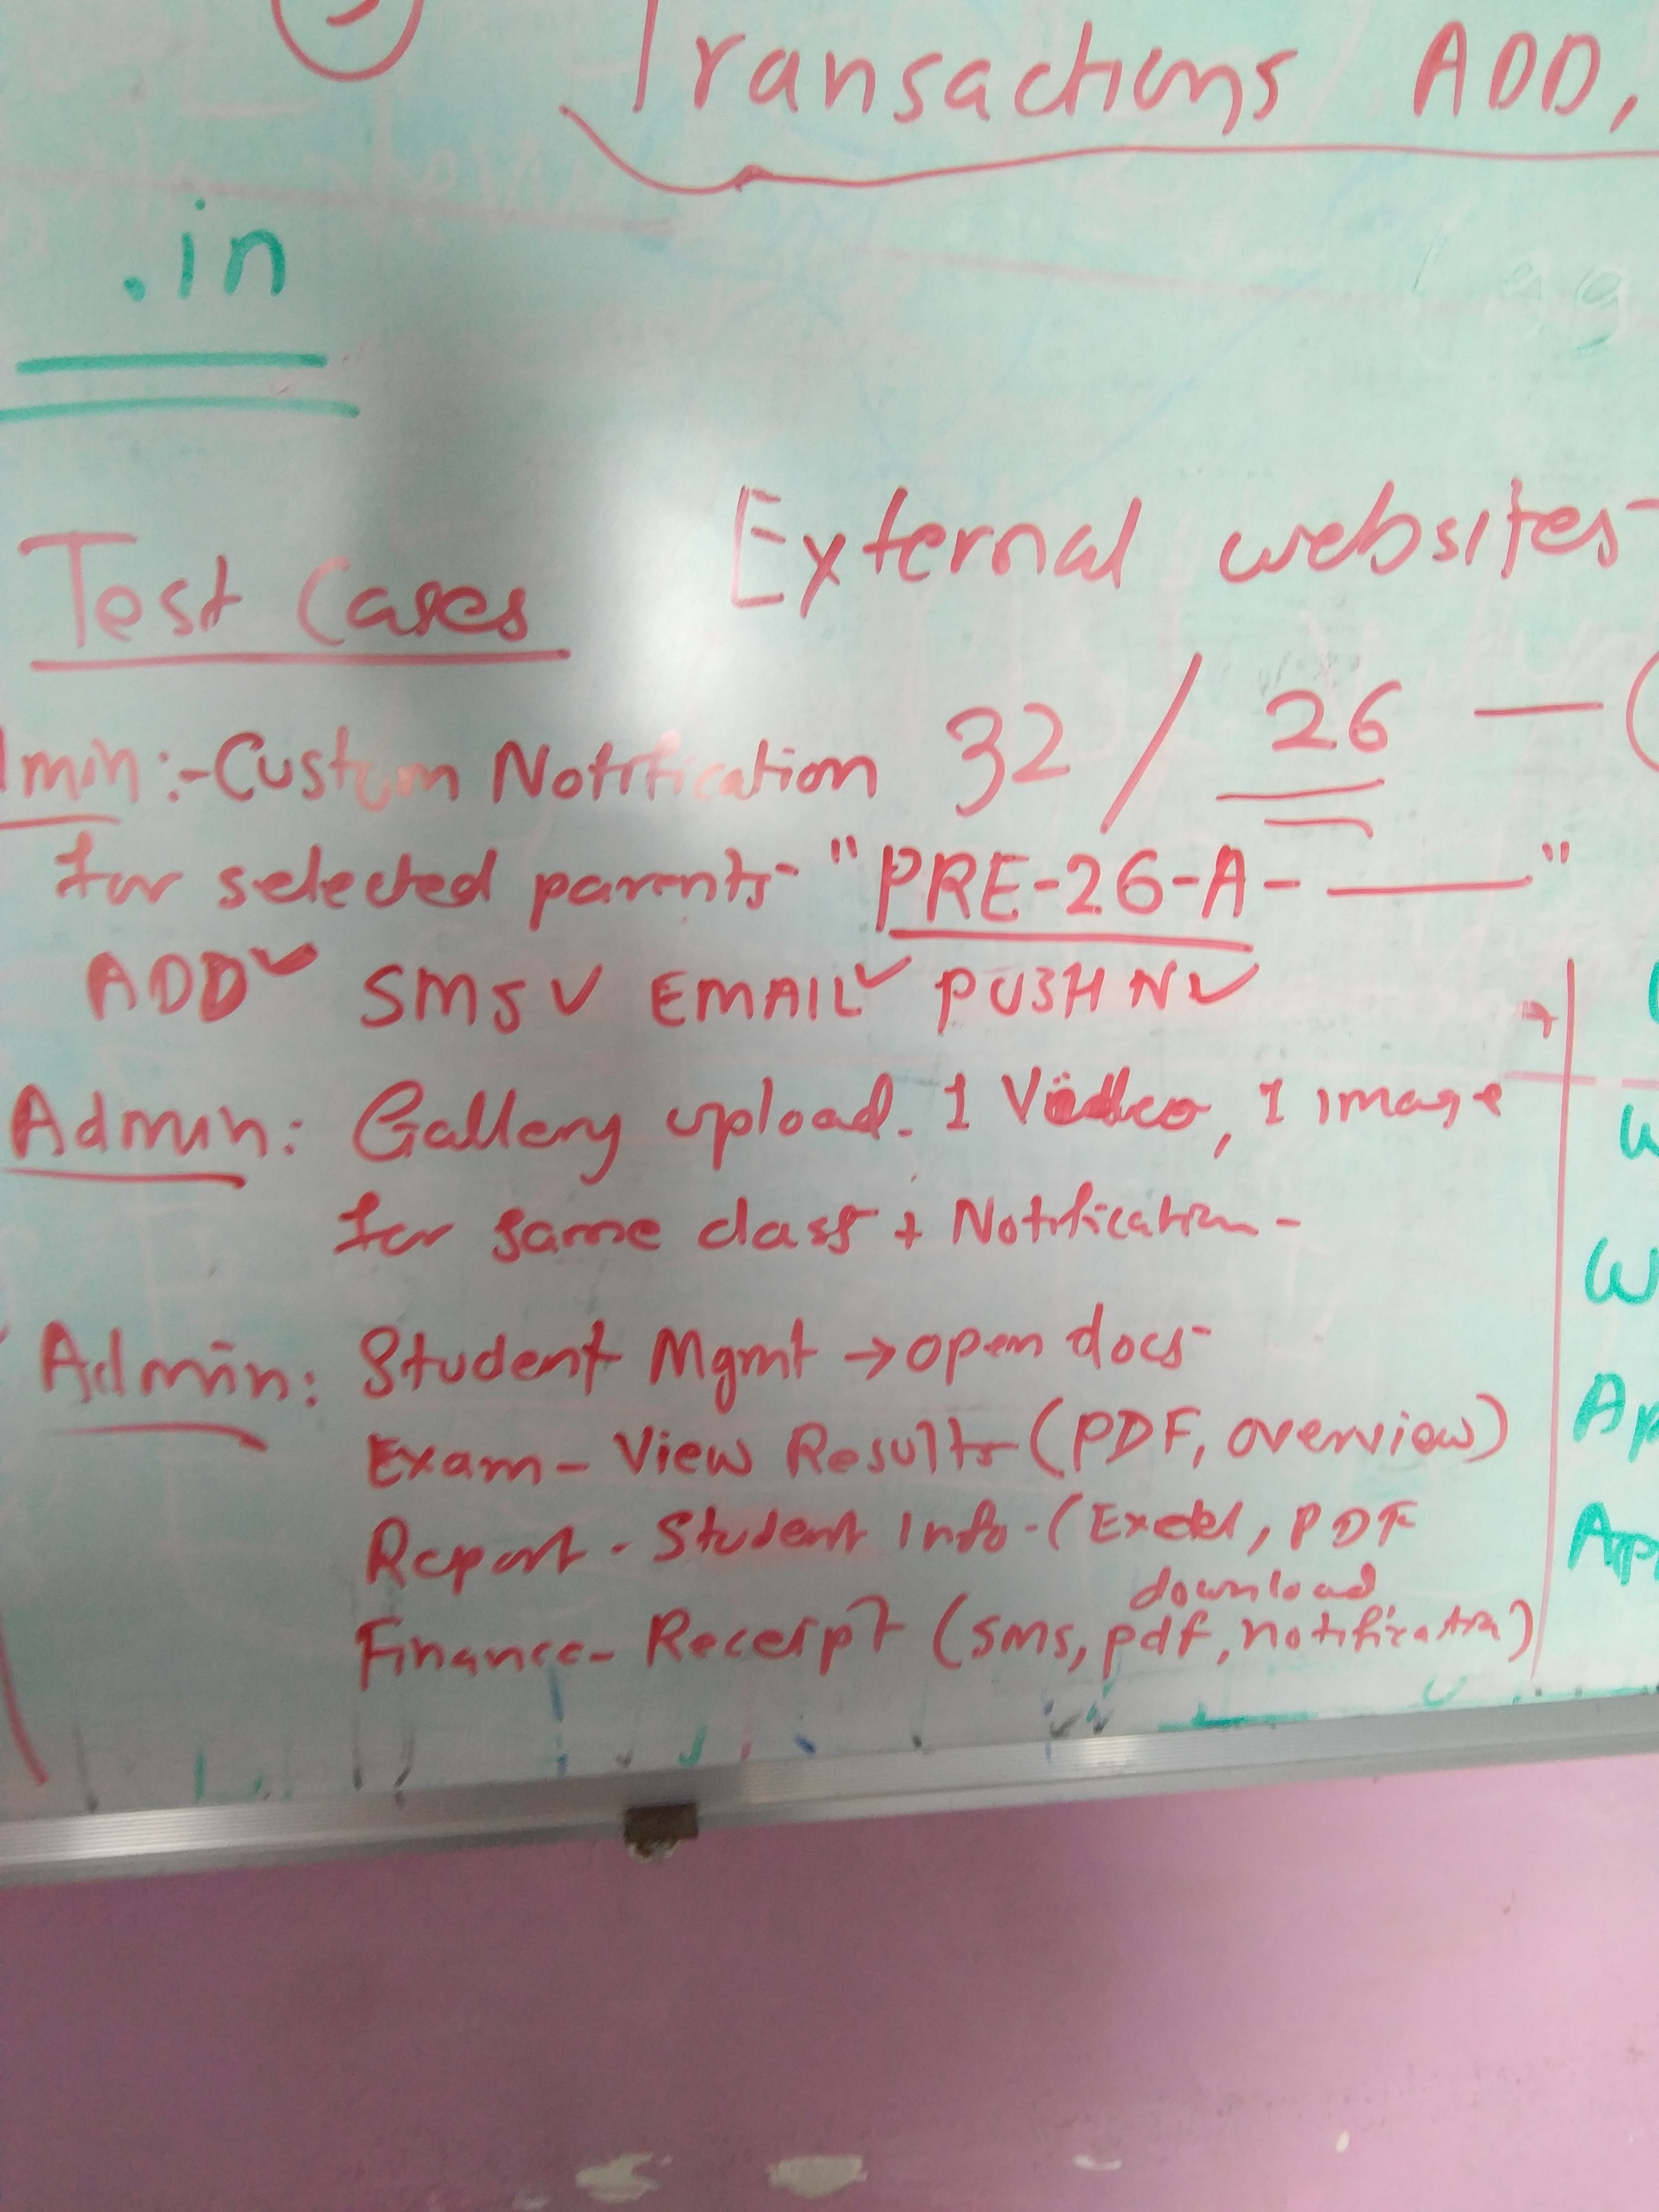 Transactions ADD,
.in
External websites
Test Cases
32 / 26 — (
min:-Custom Notification
for selected parents- "PRE-26-A- ——"
ADD✓ SMS✓ EMAIL✓ PUSH N✓
Admin: Gallery upload. 1 Video, 1 image
for same class + Notification-
Admin: Student Mgmt → open docs
Exam - View Results (PDF, overview)
Report - Student Info - (Excel, PDF
download
Finance - Receipt (sms, pdf, notification)
W
W
Ap
App